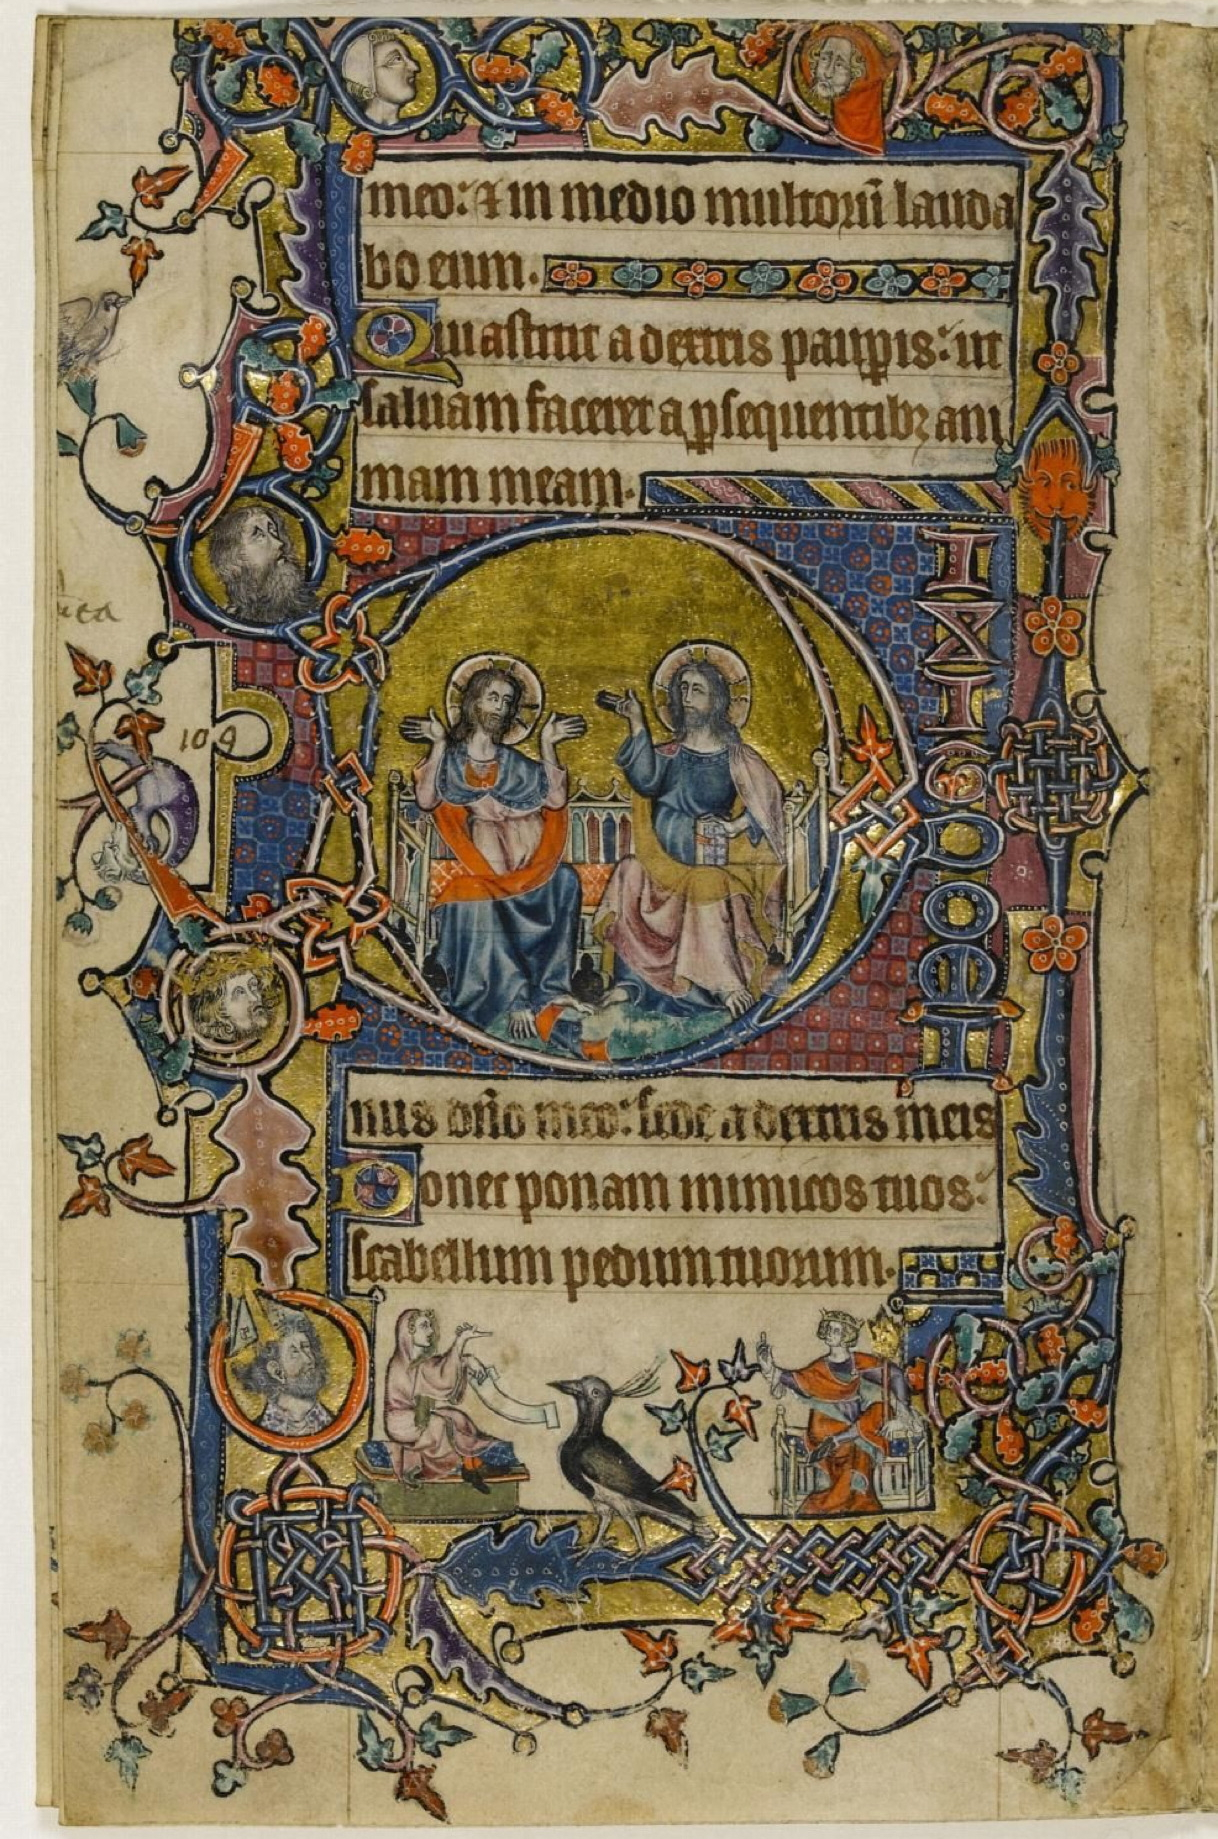 meo: ⁊ in medio multorū lauda
bo eum.
Qui astitit a dextris paup̱is: ut
saluam faceret a p̱sequentibꝫ ani
mam meam.
DIXIT DOMI
109
nus dn̄o meo: sede a dextris meis
Donec ponam inimicos tuos:
scabellum pedum tuorum.